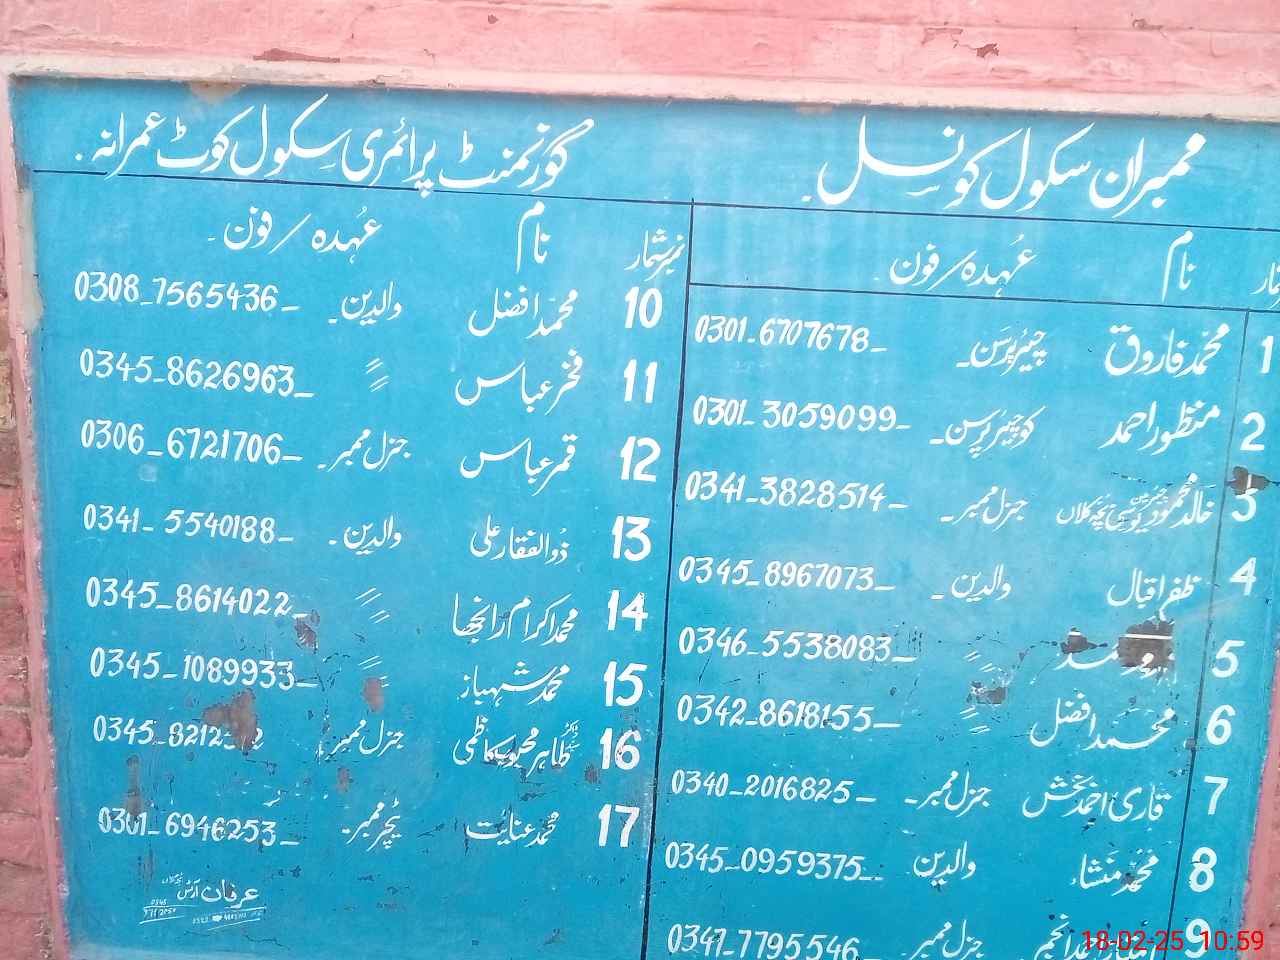 ممبران سکول کونسل۔ گورنمنٹ پرائمری سکول کوٹ عمرانہ۔
نام عُہدہ/فون۔
1 محمد فاروق چیئرپرسَن۔ 0301-6707678
2 منظور احمد کو چیئرپرسن۔ 0301-3059099
3 خالد محمود جنرل ممبر۔ 0341-3828514
4 ظفر اقبال والدین۔ 0345-8967073
5 〃 0346-5538083
6 محمد افضل 〃 0342-8618155
7 قاری احمد بخش جنرل ممبر۔ 0340-2016825
8 محمد منشاء والدین 0345-0959375
9 جنرل ممبر۔ 0347-7795546
نمبر شمار نام عُہدہ/فون۔
10 محمد افضل والدین۔ 0308-7565436
11 فخر عباس 〃 0345-8626963
12 قمر عباس جنرل ممبر۔ 0306-6721706
13 ذوالفقار علی والدین۔ 0341-5540188
14 محمد اکرام رانجھا 〃 0345-8614022
15 محمد شہباز 〃 0345-1089933
16 ڈاکٹر طاہر محبوب کاظمی جنرل ممبر۔ 0345
17 محمد عنایت ٹیچر ممبر۔ 0301-6946253
عرفان آرٹس
18-02-25 10:59